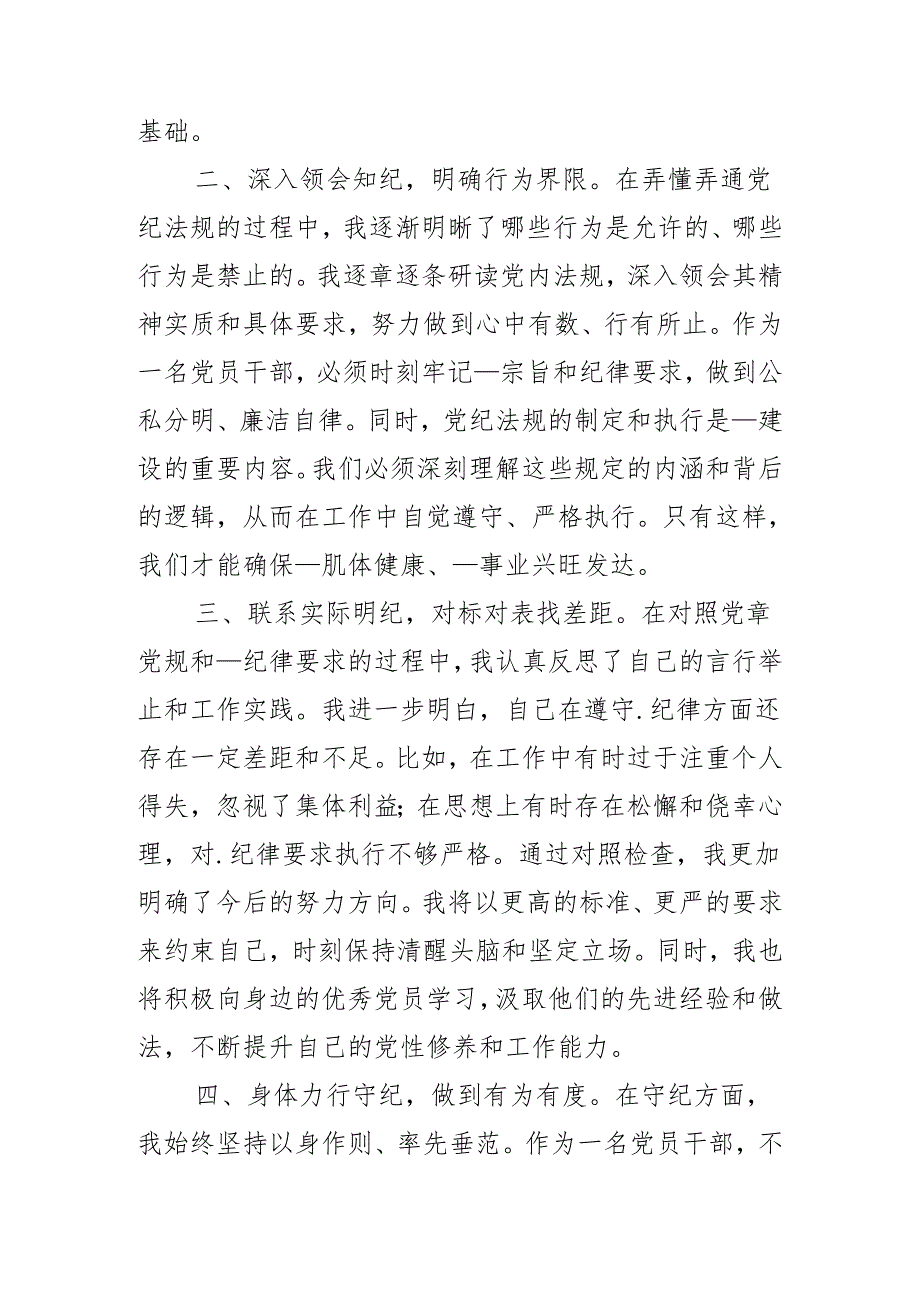 基础。
二、深入领会知纪，明确行为界限。在弄懂弄通党
纪法规的过程中，我逐渐明晰了哪些行为是允许的、哪些
行为是禁止的。我逐章逐条研读党内法规，深入领会其精
神实质和具体要求，努力做到心中有数、行有所止。作为
一名党员干部，必须时刻牢记—宗旨和纪律要求，做到公
私分明、廉洁自律。同时，党纪法规的制定和执行是—建
设的重要内容。我们必须深刻理解这些规定的内涵和背后
的逻辑，从而在工作中自觉遵守、严格执行。只有这样，
我们才能确保—肌体健康、—事业兴旺发达。
三、联系实际明纪，对标对表找差距。在对照党章
党规和—纪律要求的过程中，我认真反思了自己的言行举
止和工作实践。我进一步明白，自己在遵守.纪律方面还
存在一定差距和不足。比如，在工作中有时过于注重个人
得失，忽视了集体利益；在思想上有时存在松懈和侥幸心
理，对.纪律要求执行不够严格。通过对照检查，我更加
明确了今后的努力方向。我将以更高的标准、更严的要求
来约束自己，时刻保持清醒头脑和坚定立场。同时，我也
将积极向身边的优秀党员学习，汲取他们的先进经验和做
法，不断提升自己的党性修养和工作能力。
四、身体力行守纪，做到有为有度。在守纪方面，
我始终坚持以身作则、率先垂范。作为一名党员干部，不